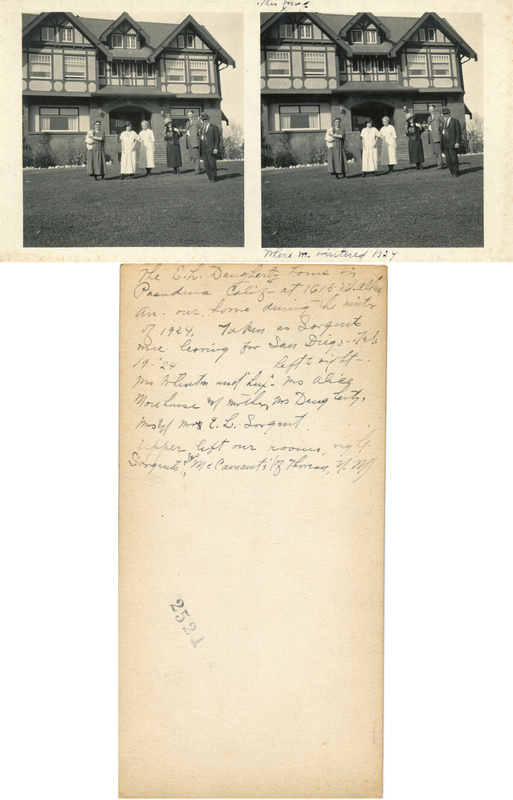 This
Where we wintered 1924
The E. L. Daugherty home in
Pasadena Calif - at 1615 N.
Av. our home during the winter
of 1924. Taken as Sargents
were leaving for San Diego - Feb
19-'24 left to right -
Mrs and " - Mrs Alice
Morehouse & mother, Mrs Daugherty,
Mrs & Mr E. L. Sargent.
Upper left our rooms, right
Sargents, & McCament's of Thoreau, N. M
2521